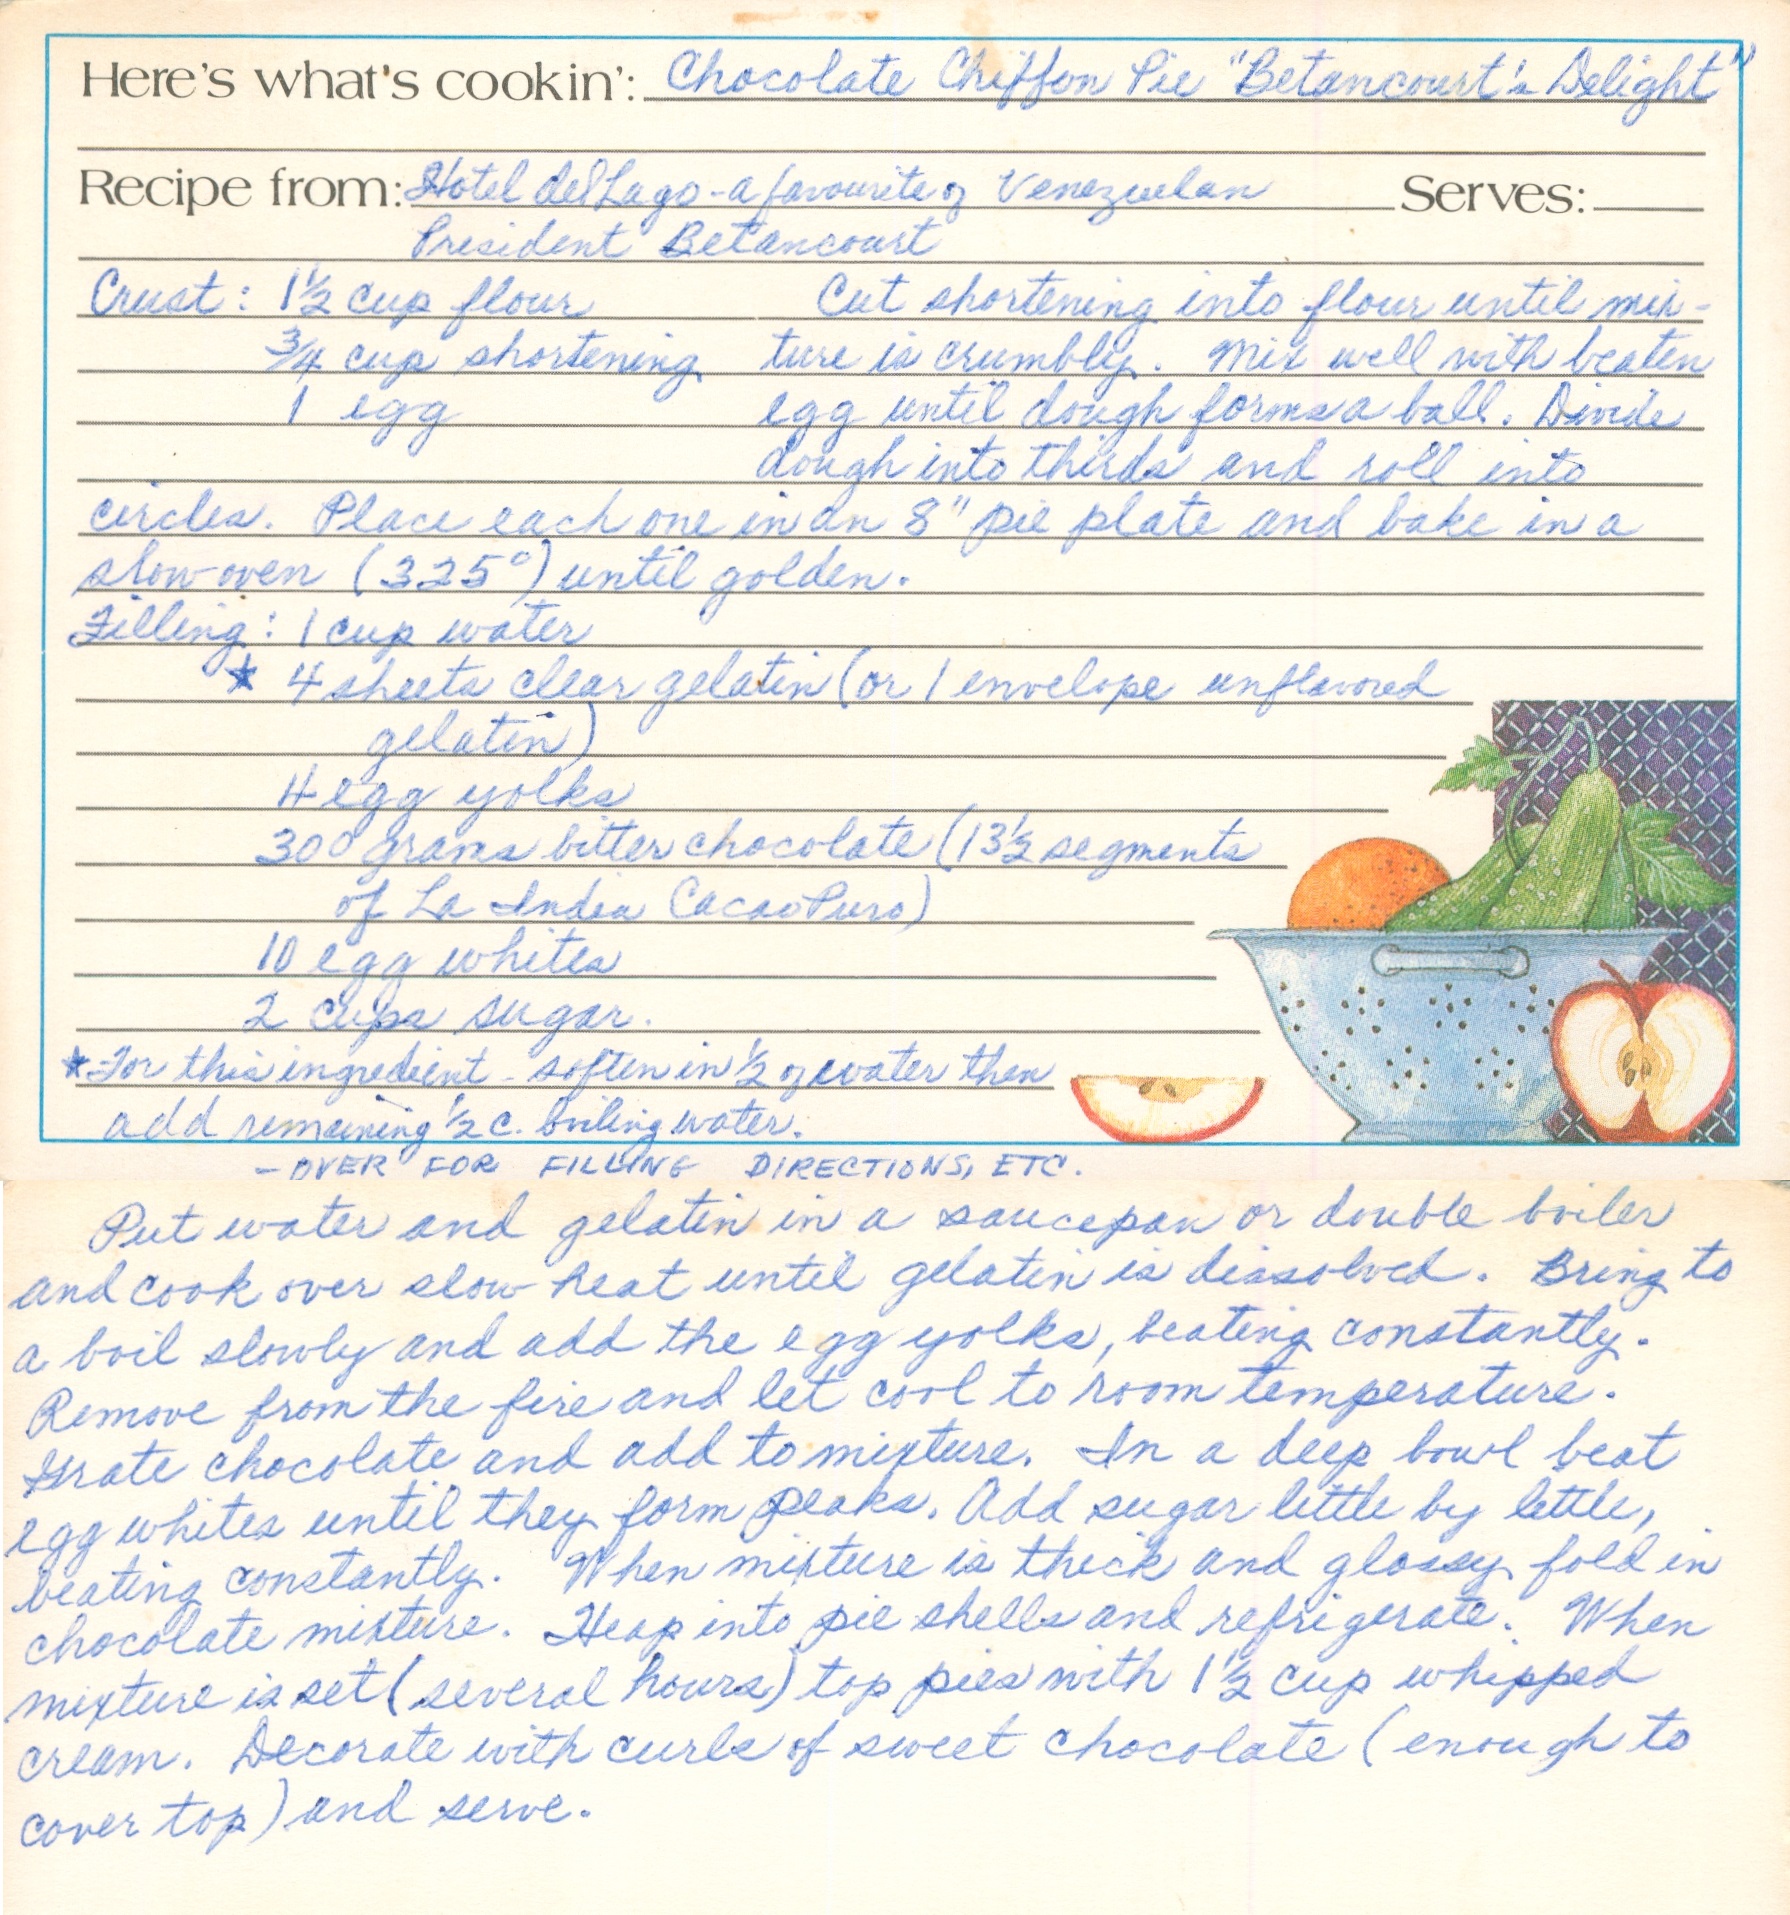 Here's what's cookin': Chocolate Chiffon Pie "Betancourt's Delight"
Recipe from: Hotel del Lago - a favourite of Venezuelan Serves:
President Betancourt
Crust: 1½ cup flour
¾ cup shortening
1 egg
Cut shortening into flour until mix-
ture is crumbly. Mix well with beaten
egg until dough forms a ball. Divide
dough into thirds and roll into
circles. Place each one in an 8" pie plate and bake in a
slow oven (325°) until golden.
Filling: 1 cup water
* 4 sheets clear gelatin (or 1 envelope unflavored
gelatin)
4 egg yolks
300 grams bitter chocolate (13½ segments
of La India Cacao Puro)
10 egg whites
2 cups sugar.
* For this ingredient - soften in ½ of water then
add remaining ½ c. boiling water.
- OVER FOR FILLING DIRECTIONS, ETC.
Put water and gelatin in a saucepan or double boiler
and cook over slow heat until gelatin is dissolved. Bring to
a boil slowly and add the egg yolks, beating constantly.
Remove from the fire and let cool to room temperature.
Grate chocolate and add to mixture. In a deep bowl beat
egg whites until they form peaks. Add sugar little by little,
beating constantly. When mixture is thick and glossy fold in
chocolate mixture. Heap into pie shells and refrigerate. When
mixture is set (several hours) top pies with 1½ cup whipped
cream. Decorate with curls of sweet chocolate (enough to
cover top) and serve.